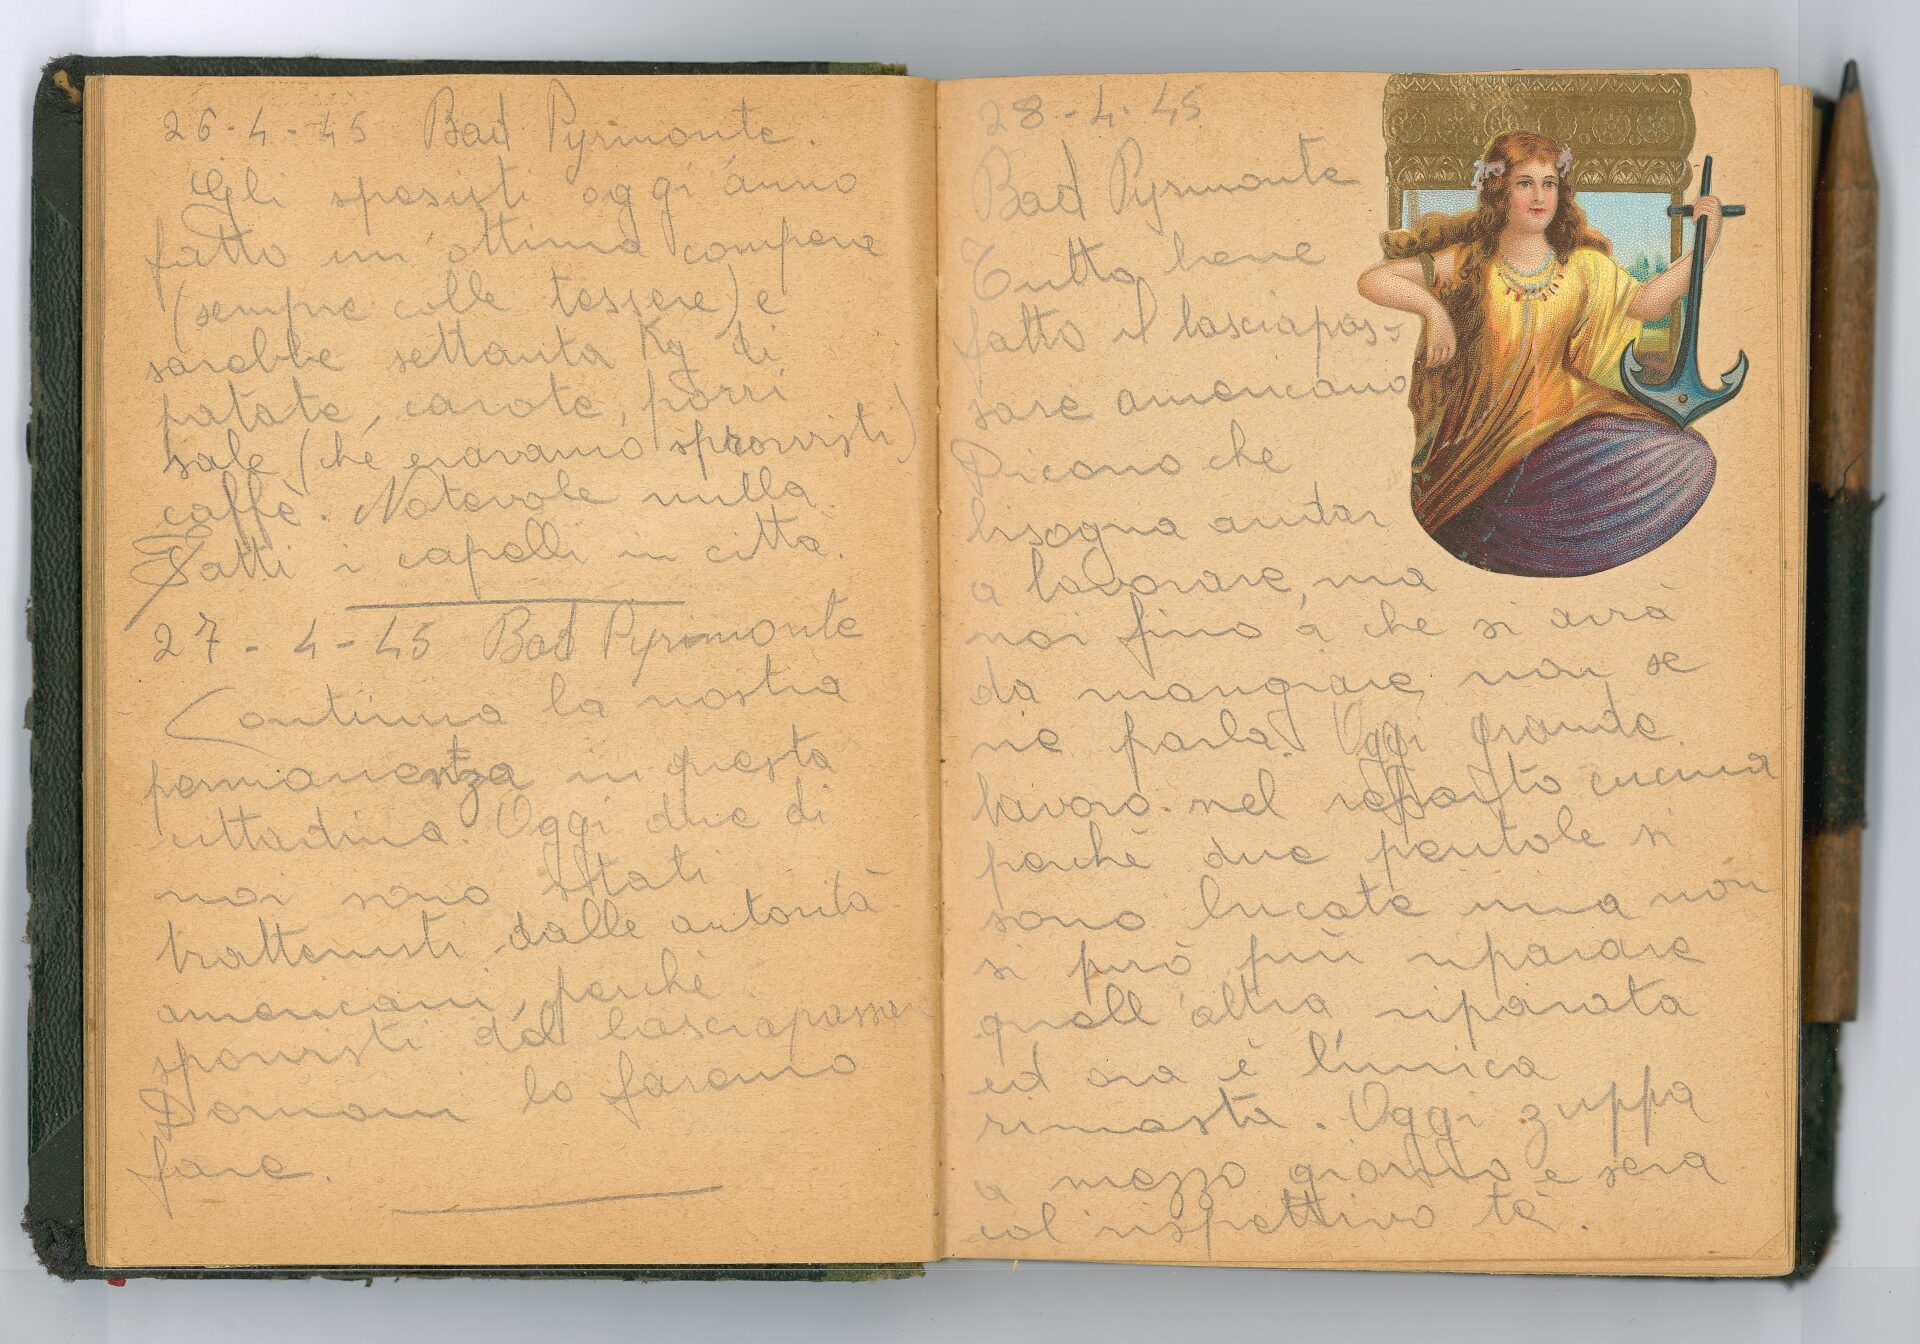 26-4-45 Bad Pyrmonte.
Gli spesisti oggi ánno
fatto un'ottima compera
(sempre colle tessere) e
sarebbe settanta Kg di
patate, carote, porri
sale (ché eravamo sprovvisti)
caffè. Notevole nulla.
Fatti i capelli in città.
27-4-45 Bad Pyrmonte
Continua la nostra
permanenza in questa
cittadina. Oggi due di
noi sono stati
trattenuti dalle autorità
americani, perchè
sprovvisti del lasciapassare
Domani lo faremo
fare.
28-4-45
Bad Pyrmonte
Tutto bene
fatto il lasciapas-
sare americano
Dicono che
bisogna andar
a lavorare, ma
noi fino a che si avrà
da mangiare, non se
ne parla. Oggi grande
lavoro nel reparto cucina
perchè due pentole si
sono bucate una non
si può più riparare
quell'altra riparata
ed ora è l'unica
rimasta. Oggi zuppa
a mezzo giorno e sera
col rispettivo tè.